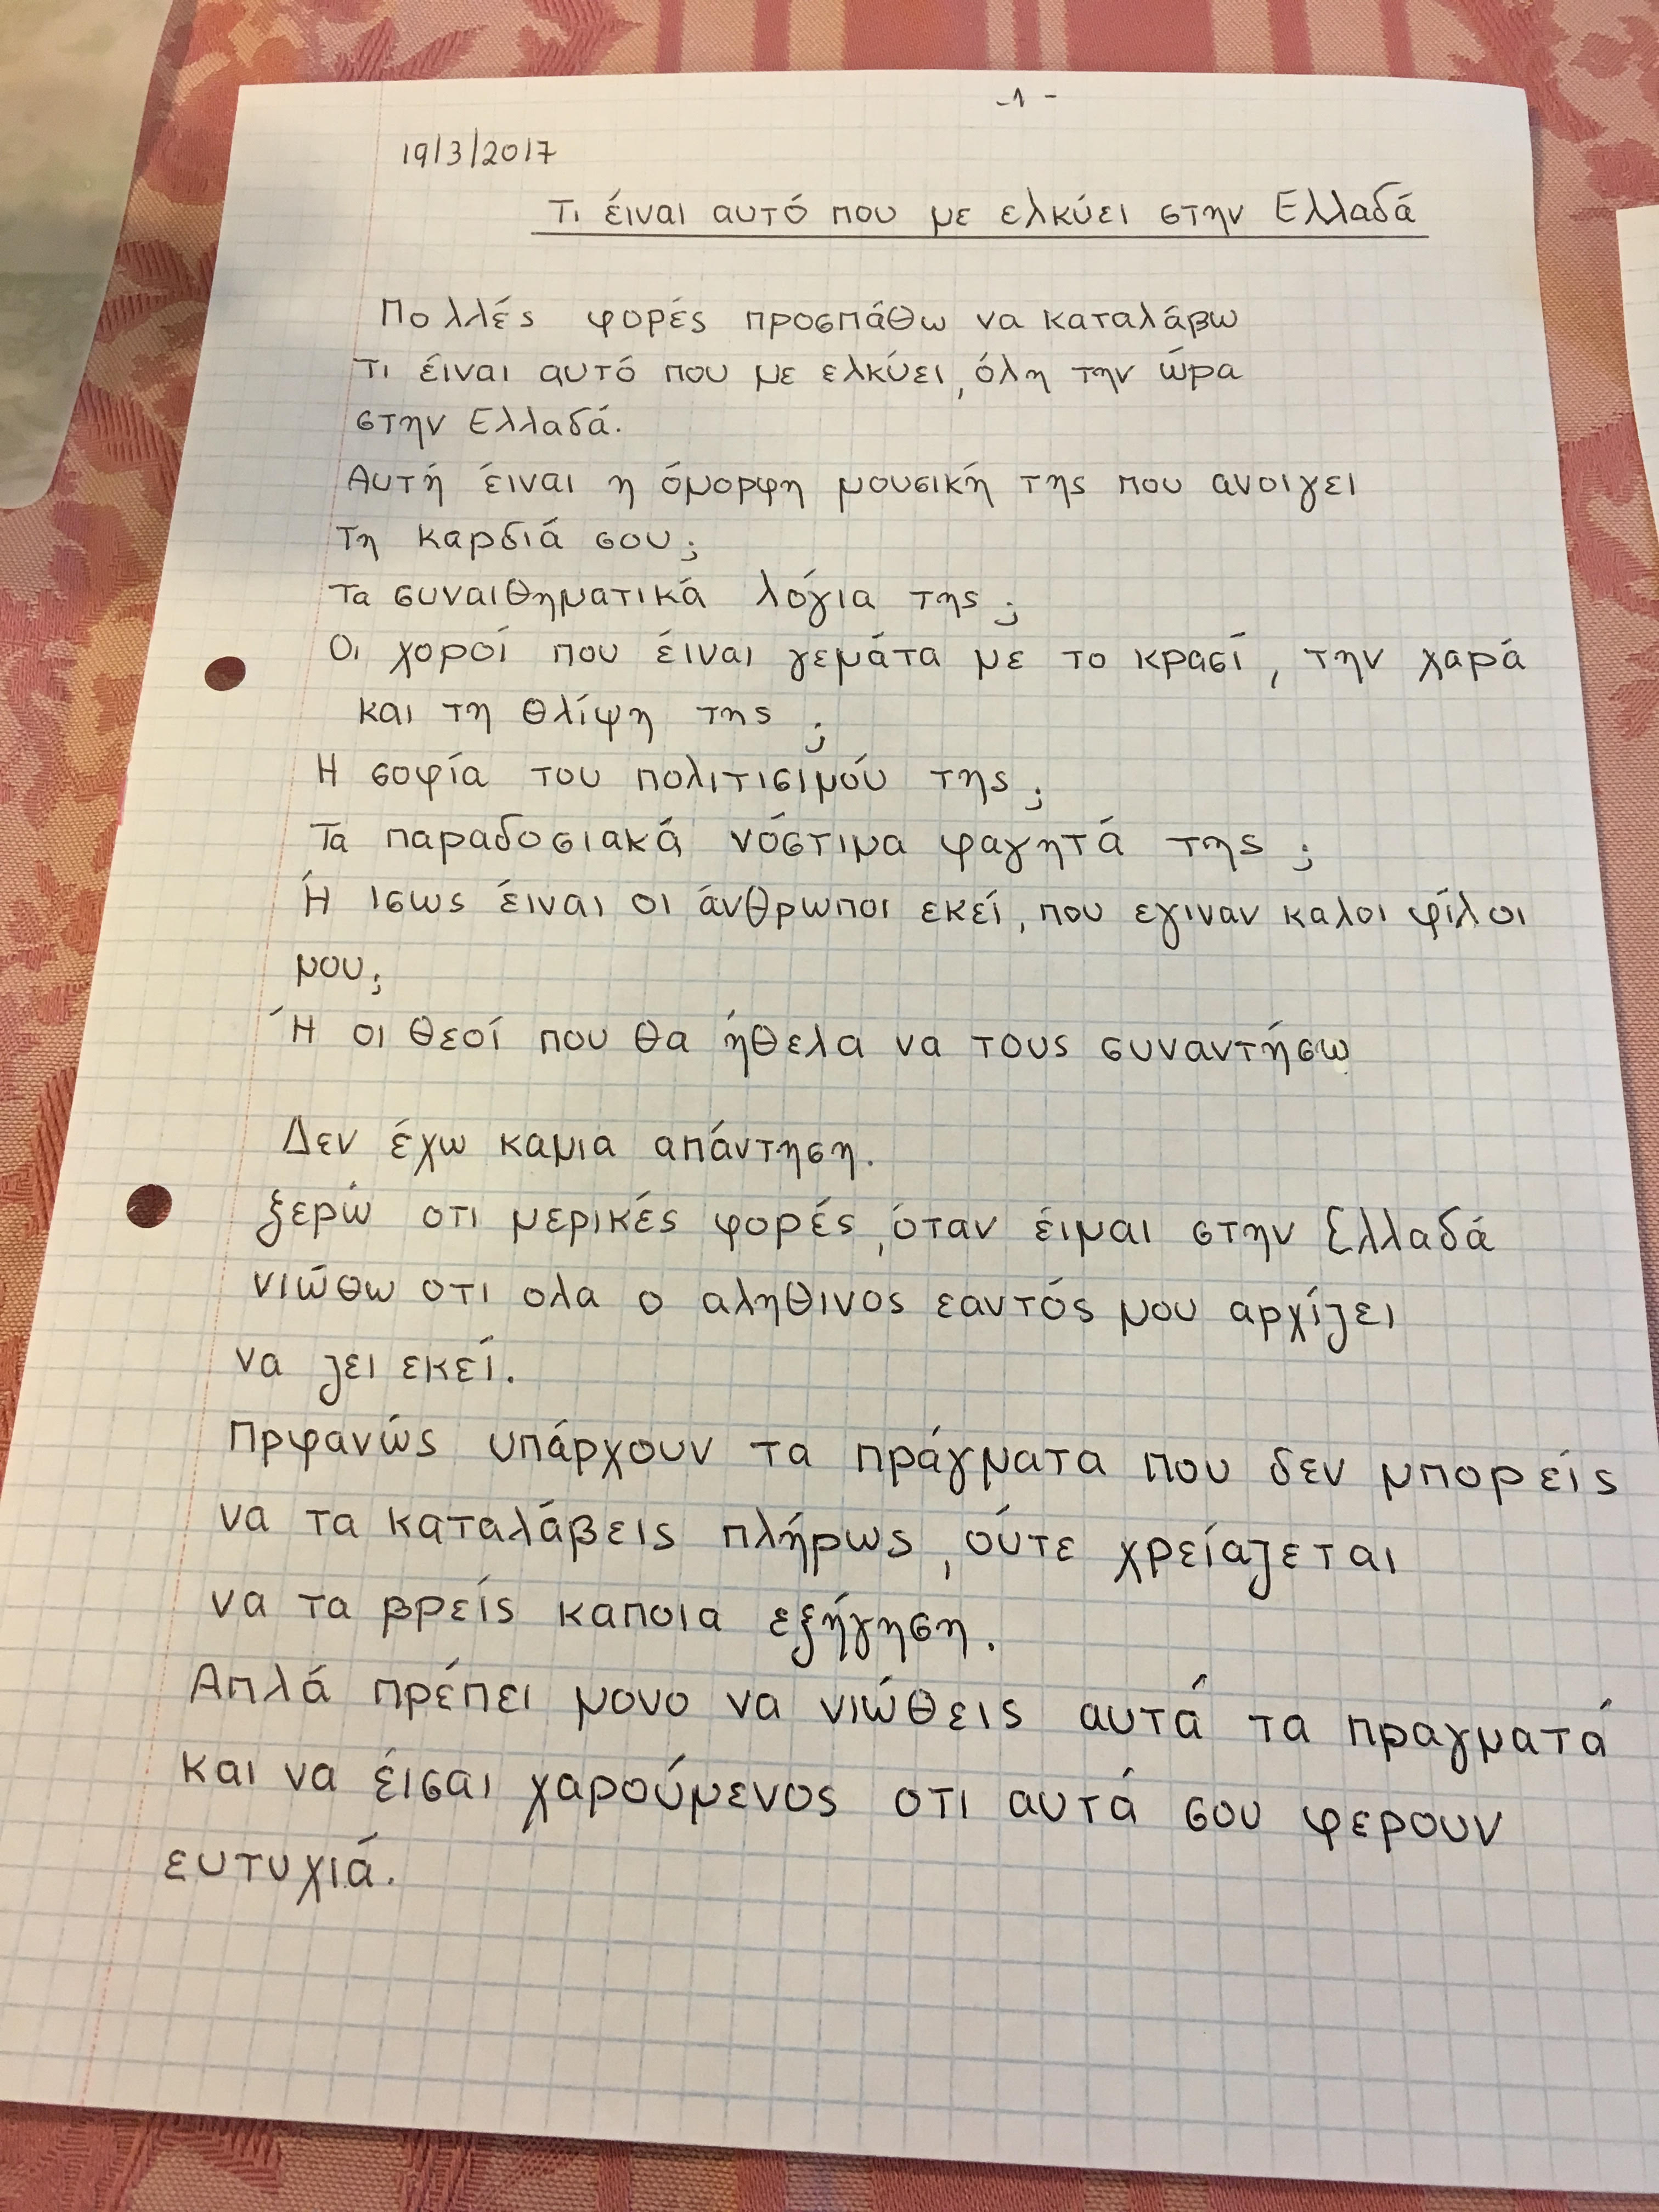 -1-
19/3/2017
Τι έιναι αυτό που με ελκύει στην Ελλαδά
Πολλές φορές προσπάθω να καταλάβω
τι έιναι αυτό που με ελκύει, όλη την ώρα
στην Ελλαδά.
Αυτή έιναι η όμορφη μουσική της που ανοιγει
τη καρδιά σου;
Τα συναιθηματικά λόγια της;
Οι χοροί που έιναι γεμάτα με το κρασί, την χαρά
και τη θλίψη της;
Η σοφία του πολιτισιμού της;
Τα παραδοσιακά νόστιμα φαγητά της;
Ή ισως έιναι οι άνθρωποι εκεί, που εγιναν καλοι φίλοι
μου;
Ή οι θεοί που θα ήθελα να τους συναντήσω
Δεν έχω καμια απάντηση.
ξερώ οτι μερικές φορές, όταν έιμαι στην Ελλαδά
νιώθω οτι ολα ο αληθινος εαυτός μου αρχίζει
να ζει εκεί.
Πρφανώς υπάρχουν τα πράγματα που δεν μπορείς
να τα καταλάβεις πλήρως, ούτε χρείαζεται
να τα βρείς καποια εξήγηση.
Απλά πρέπει μονο να νιώθεις αυτά τα πραγματά
και να έισαι χαρούμενος οτι αυτά σου φερουν
ευτυχιά.